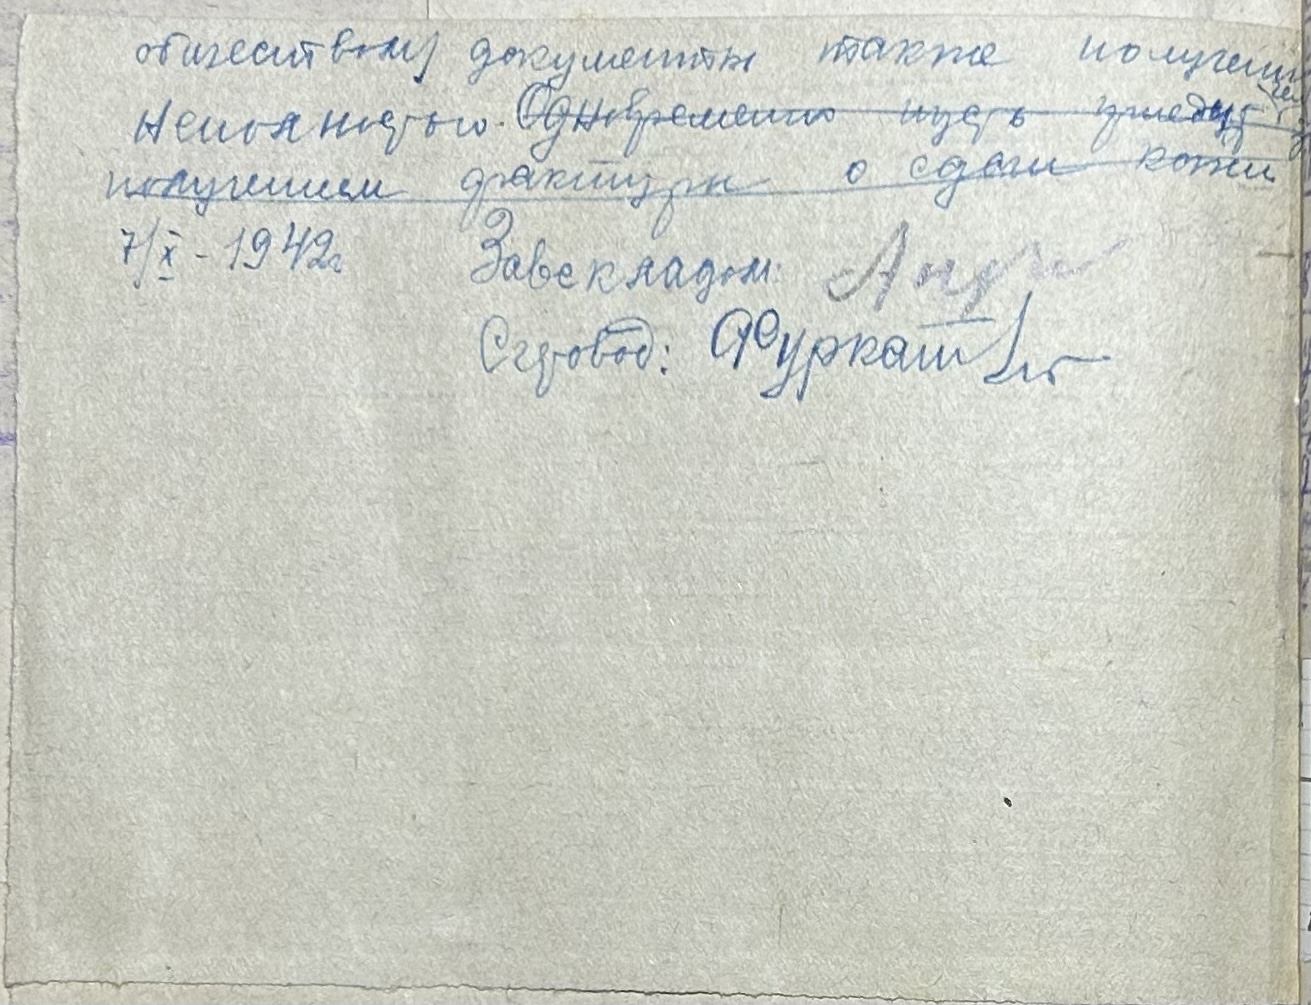 обичеством документы также получены
неполностью. Одновременно пусть приедут за
получением фактуры о сдачи кожи
7/X - 1942г Завскладом:
Счетовод: Фуркат